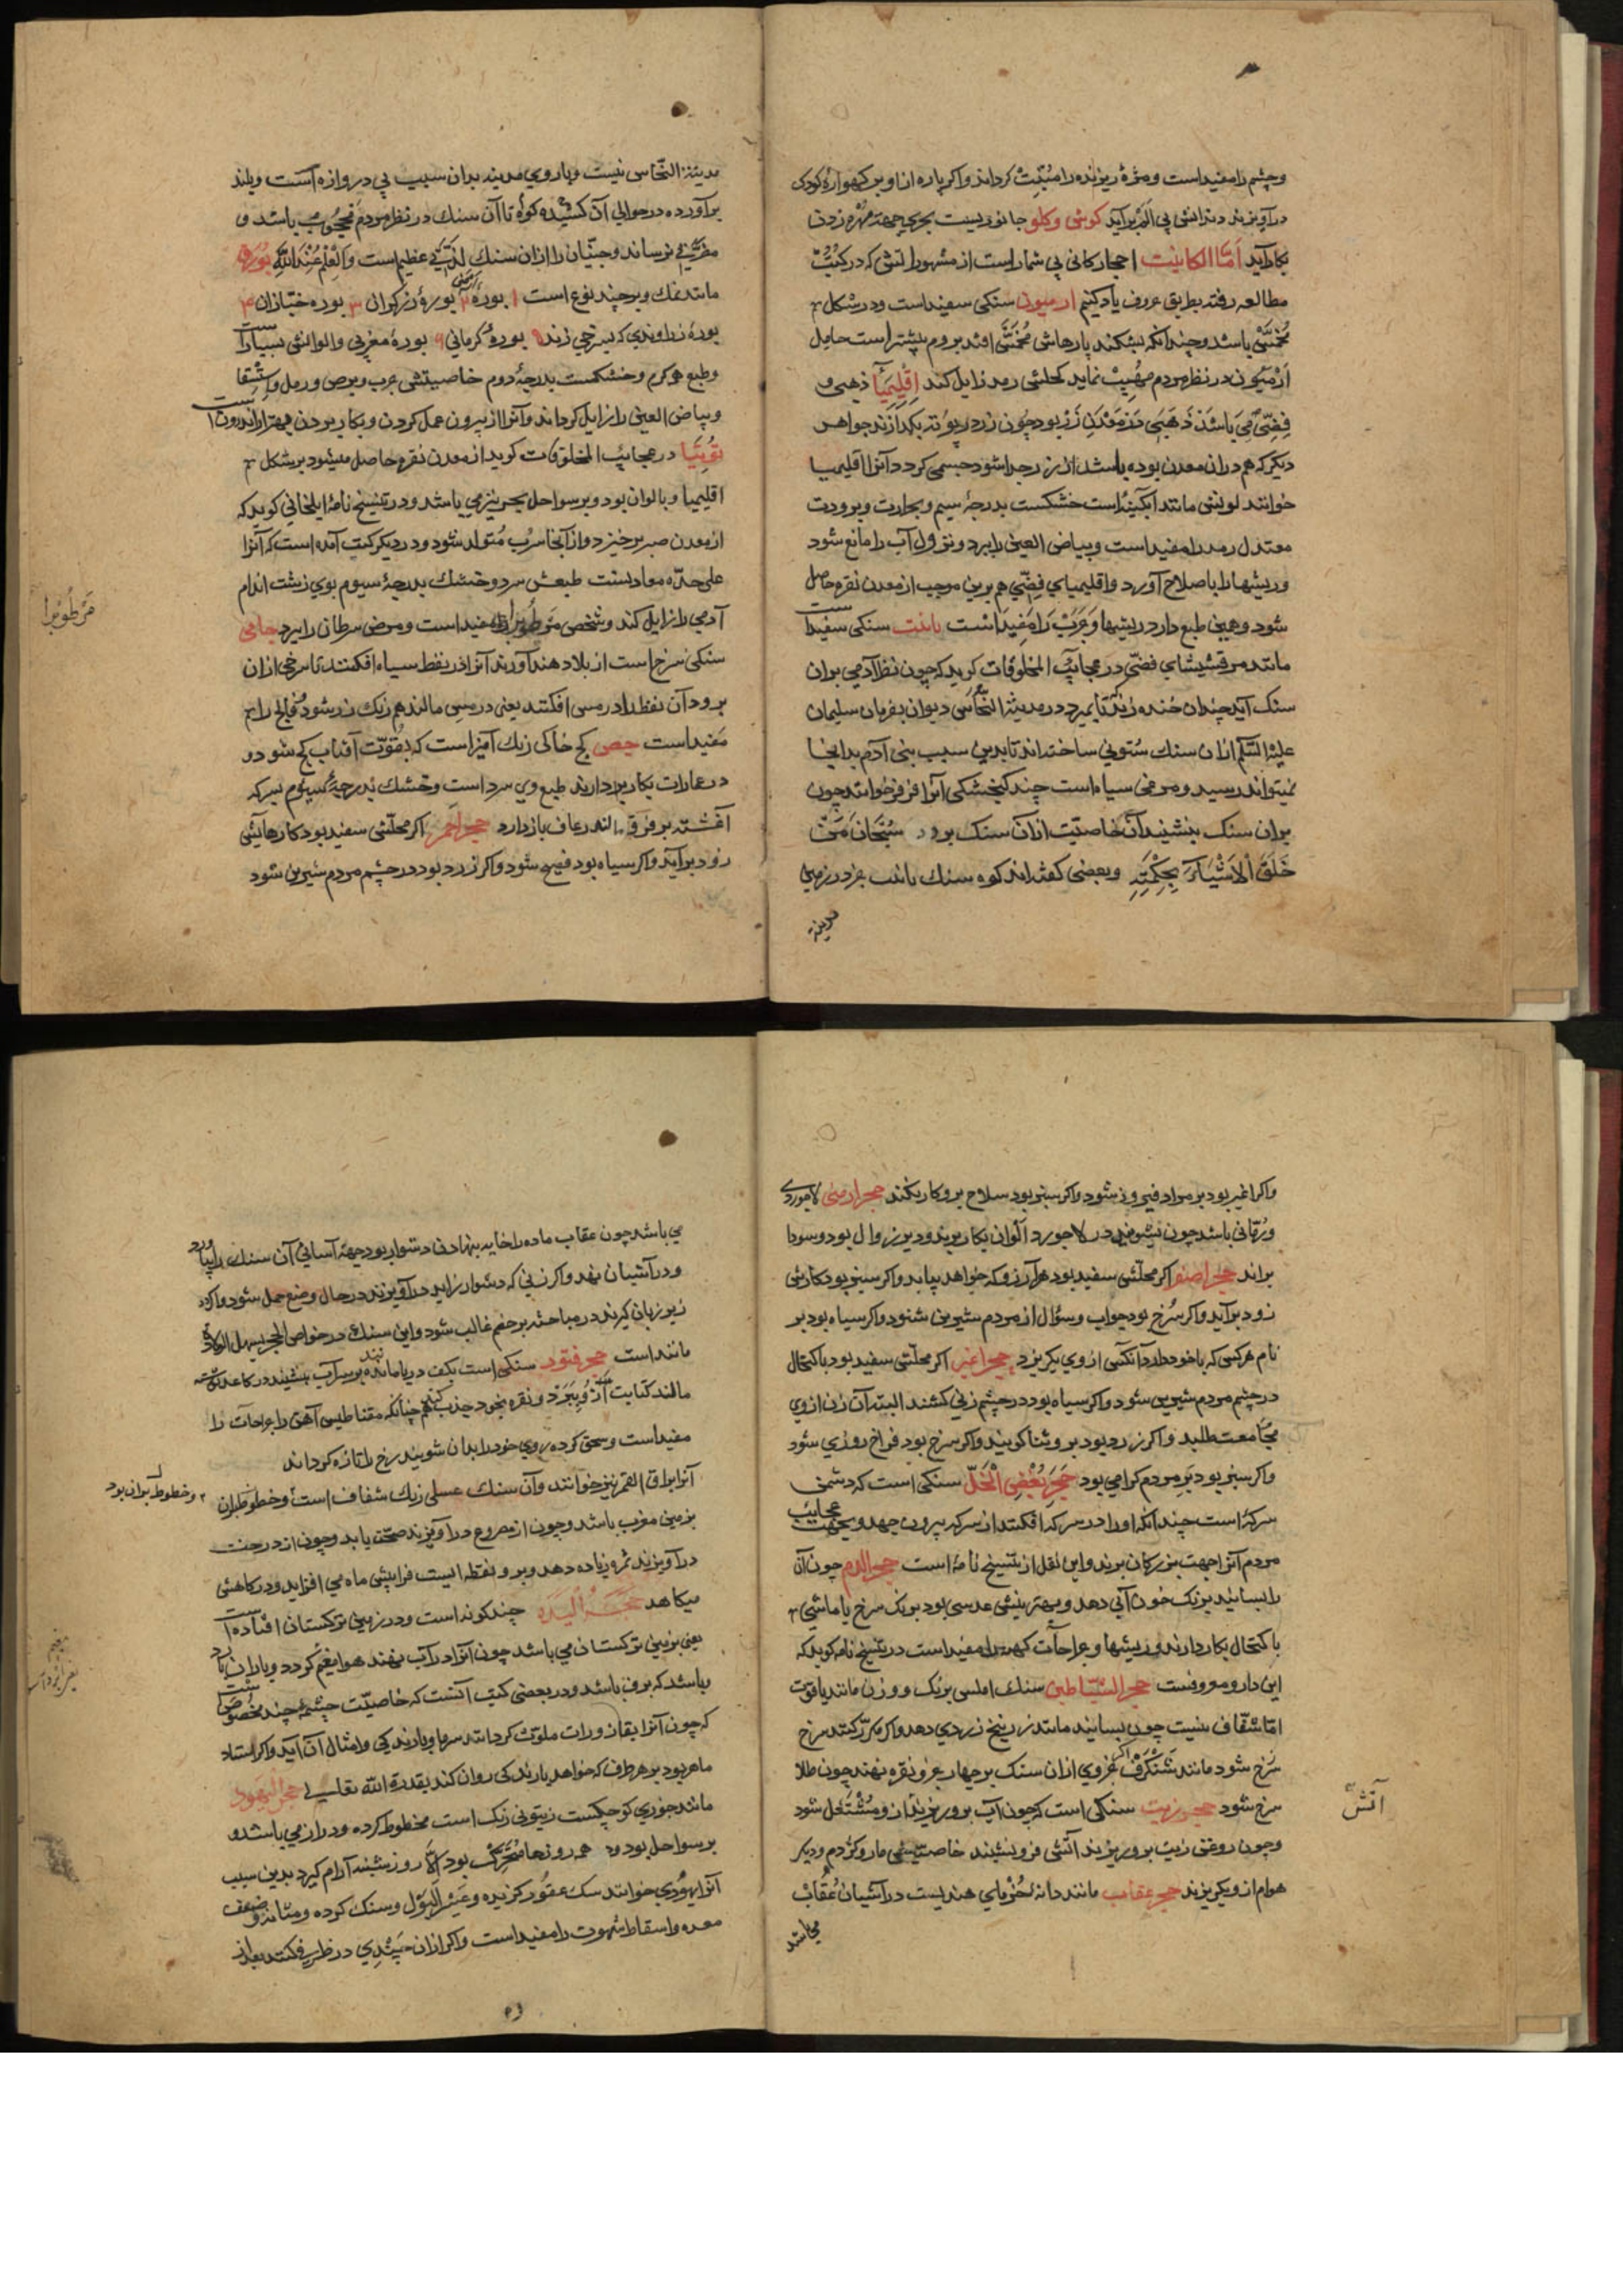 وچشم را مفیداست ومژهٔ ریزنده را مُنْبِت کرداند واکر پاره ازاو بر کهوارهٔ کودک
درآویزند دندانش بی الم برآید کوش وکلو جانوریست بحری جهة مهره زدن
بکارآید اَمّا الکانیات احجار کانی بی شمار است از مشهوراتش که در کتب
مطالعه رفته بطریق حروف یاد کنیم ارمیون سنکی سفیداست ودر شکل
مُخَمَّس باشد وچندانکه بشکند پارهاش مُخَمَّس افتد بروم بیشتر است حامل
اَرْمیون در نظر مردم مَهیب نماید کحلش رمد زایل کند اِقْلیمیا ذهبی و
فِضّی می باشد ذهبی در معدن زر بود چون زر در بوته بکدازند جواهر
دیکر که هم دران معدن بوده باشد از زر جدا شود جسمی کردد آنرا اقلیمیا
خوانند لونش مانند آبکینه است خشکست بدرجهٔ سیم وبحرارت وبرودت
معتدل رمد را مفیداست وبیاض العین را ببرد ونزول آب را مانع شود
وریشها را باصلاح آورد واقلیمیای فضّی هم برین موجب از معدن نقره حاصل
شود وهمین طبع دارد ریشها وجَرَب را مفید است باهت سنکی سفیداست
مانند مرقشیشای فضّی در عجایب المخلوقات کوید که چون نظر آدمی بران
سنک آید چندان خنده زند تا بمیرد در مدینة النّحاس دیوان بفرمان سلیمان
علیه السّلم ازان سنک ستونی ساخته اند تا بدین سبب بنی آدم بدانجا
نمیتواند رسید ومرغی سیاه است چند کنجشکی آنرا فرفر خوانند چون
بران سنک بنشیند آن خاصیّت ازان سنک برود سُبْحانَ مَنْ
خَلَقَ الْاَشْیاءَ بِحِکْمَتِهِ وبعضی کفته اند کوه سنک باهت جز در زمین
مدینة
مدینة النّحاس نیست وباروی مدینه بدان سبب بی دروازه است وبلند
برآورده در حوالی آن کشیده کوه تا آن سنک در نظر مردم محجوب باشد و
مضرّتی نرساند وجنّیان را ازان سنک لذّتی عظیم است وَالْعِلْمُ عِنْدَ اللّٰهِ بُورَق
مانند نمک وبر چند نوع است ۱ بورهٔ ارمنی ۲ بورهٔ زرکران ۳ بوره خبّازان ۴
بورهٔ زراوندی که بسرخی زند ۵ بورهٔ کرمانی ۶ بورهٔ مغربی والوانش بسیار است
وطبع هر کرم وخشکست بدرجهٔ دوم خاصیتش جرب وبرص ورمل واستسقا
وبیاض العین را زایل کرداند وآنرا از بیرون عمل کردن وبکار بردن بهتر از اندرون است
تُوتیا در عجایب المخلوقات کوید از معدن نقره حاصل میشود بر شکل
اقلیمیا وبالوان بود وبر سواحل بحر نیز می باشد ودر تنسخ نامهٔ ایلخانی کوید که
از معدن صبر برخیزد واز آنجا سرب متولد شود ودر دیکر کتب آمده است که آنرا
علی حدّه معادنست طبعش سرد وخشک بدرجهٔ سیوم بوی زشت اندام
آدمی را زایل کند وشخص مرطوب را مفیداست ومرض سرطان را ببرد جامی
سنکی سرخ است از بلاد هند آورند آنرا در نفط سیاه افکنند تا سرخی ازان
برود آن نفط را در مس افکنند یعنی در مس مالند هم رنک زر شود فالج را
مفیداست جص کج خاکی رنک آمیز است که بقوّت آفتاب کج شود و
در عمارات بکار دارند طبع وی سرد است وخشک بدرجهٔ سیوم بسرکه
آغشته بر فرق مالند رعاف باز دارد حجر احمر اکر محکّش سفید بود کارهایش
زود برآید واکر سیاه بود فصیح شود واکر زرد بود در چشم مردم شیرین شود
مَرْطُوبْرا
واکر اغبر بود بر مراد فیروز شود واکر سبز بود سلاح برو کار نکند حجر ارمنی لاجوردی
ورمّانی باشد چون بشویند در لاجورد الوانی بکار برند ودیر زوال بود وسودا
براند حجر اصفر اکر محکّش سفید بود هر آرزو که خواهد بیابد واکر سبز بود کارش
زود برآید واکر سُرخ بود جواب وسؤال از مردم شیرین شنود واکر سیاه بود بر
نام هر کس که با خود دارد آنکس ازوی بکریزد حجر اغبر اکر محکّش سفید بود باکتحال
در چشم مردم شیرین شود واکر سیاه بود در چشم زنی کشند البتّه آن زن ازوی
مجامعت طلبد واکر زرد بود برو ثنا کویند واکر سرخ بود فراخ روزی شود
واکر سبز بود بَرِ مردم کرامی بود حَجَرِ بُغْضِ الْخَلّ سنکی است که دشمن
سرکه است چندانکه اورا در سرکه افکنند از سرکه بیرون جهد وبجهت عجایب
مردم آنرا جهت بزرکان برند واین نقل از تنسخ نامه است حجر الدم چون آن
را بسایند برنک خون آبی دهد وبهترینش عدسی بود برنک سرخ یا ماشی
باکتحال بکار دارند وریشها وجراحات کهنه را مفیداست در تنسخ نامه کوید که
این دارو معروفست حجر الشیاطین سنک املس برنک ووزن مانند یاقوت
امّا شفّاف نیست چون بسایند مانند زرنیخ زردی دهد واکر مکرّر کنند سرخ
سُرخ شود مانند شَنْکَرْف اکر جزوی ازان سنک بر چهار جزو نقره نهند چون طلا
سرخ شود حجر زیت سنکی است که چون آب برو ریزند آن ومُشْتَعِل شود
وچون روغن زیت برو ریزند آتش فرو نشیند خاصیتش مار وکژدم ودیکر
هوام ازو بکریزند حجر عقاب مانند دانهٔ خُرمای هندیست در آشیان عُقاب
می باشد
آتش
می باشد چون عقاب ماده را خایه نهادن دشوار بود جهة آسانی آن سنک را بیاورد
ودر آشیان نهد واکر زنی که دشوار زاید درآویزند در حال وضع حمل شود واکر در
زیر زبان کیرند در مباحثه بر خصم غالب شود واین سنک در خواص الحجر یسهل الولادة
مانند است حجر قنتود سنکی است بکف دریا ماننده بر سر آب نشیند در کاغذ نوشته
مالند کتابت ازو ببرد ونقره بخود جذب کند همچنانکه مقناطیس آهن را جراحات را
مفیداست وسحق کرده روی خود را بدان شویند رخ را تازه کرداند
آنرا بزاق القمر نیز خوانند وآن سنک عسلی رنک شفاف است وخطوط بران
بزمین مغرب باشد وچون از مصروع درآویزند صحّت یابد وچون از درخت
درآویزند ثمره زیاده دهد وبرو نقطه ایست فزایش ماه می افزاید ودر کاهش
میکاهد حَجَرُ الْیَدَه چند کونه است ودر زمین ترکستان افتاده است
یعنی بزمین ترکستان می باشد چون آنرا در آب نهند هوا بغیم کردد وباران بارد
وباشد که برف باشد ودر بعضی کتب آنست که خاصیّت چشمهٔ چند مخصوص است
که چون آنرا بقاذورات ملوّث کردانند سرما وبارندکی وامثال آن آید واکر استاد
ماهر بود بر هر طرف که خواهد بارندکی روان کند بقدرة اللّٰه تعالی حجر الیهود
مانند جوزی کوچکست زیتونی رنک است مخطوط کرده ودراز می باشد و
بر سواحل بود و همه روزها مُتَحَرِّک بود اِلّا روز شنبه آرام کیرد بدین سبب
آنرا یهودی خوانند سک عقور کزیده وعُسْر الْبَوْل وسنک کرده ومثانه وضعف
معده واسقاط شهوت را مفیداست واکر ازان چندی در ظرفی کنند بعد از
وخطوط بران بود